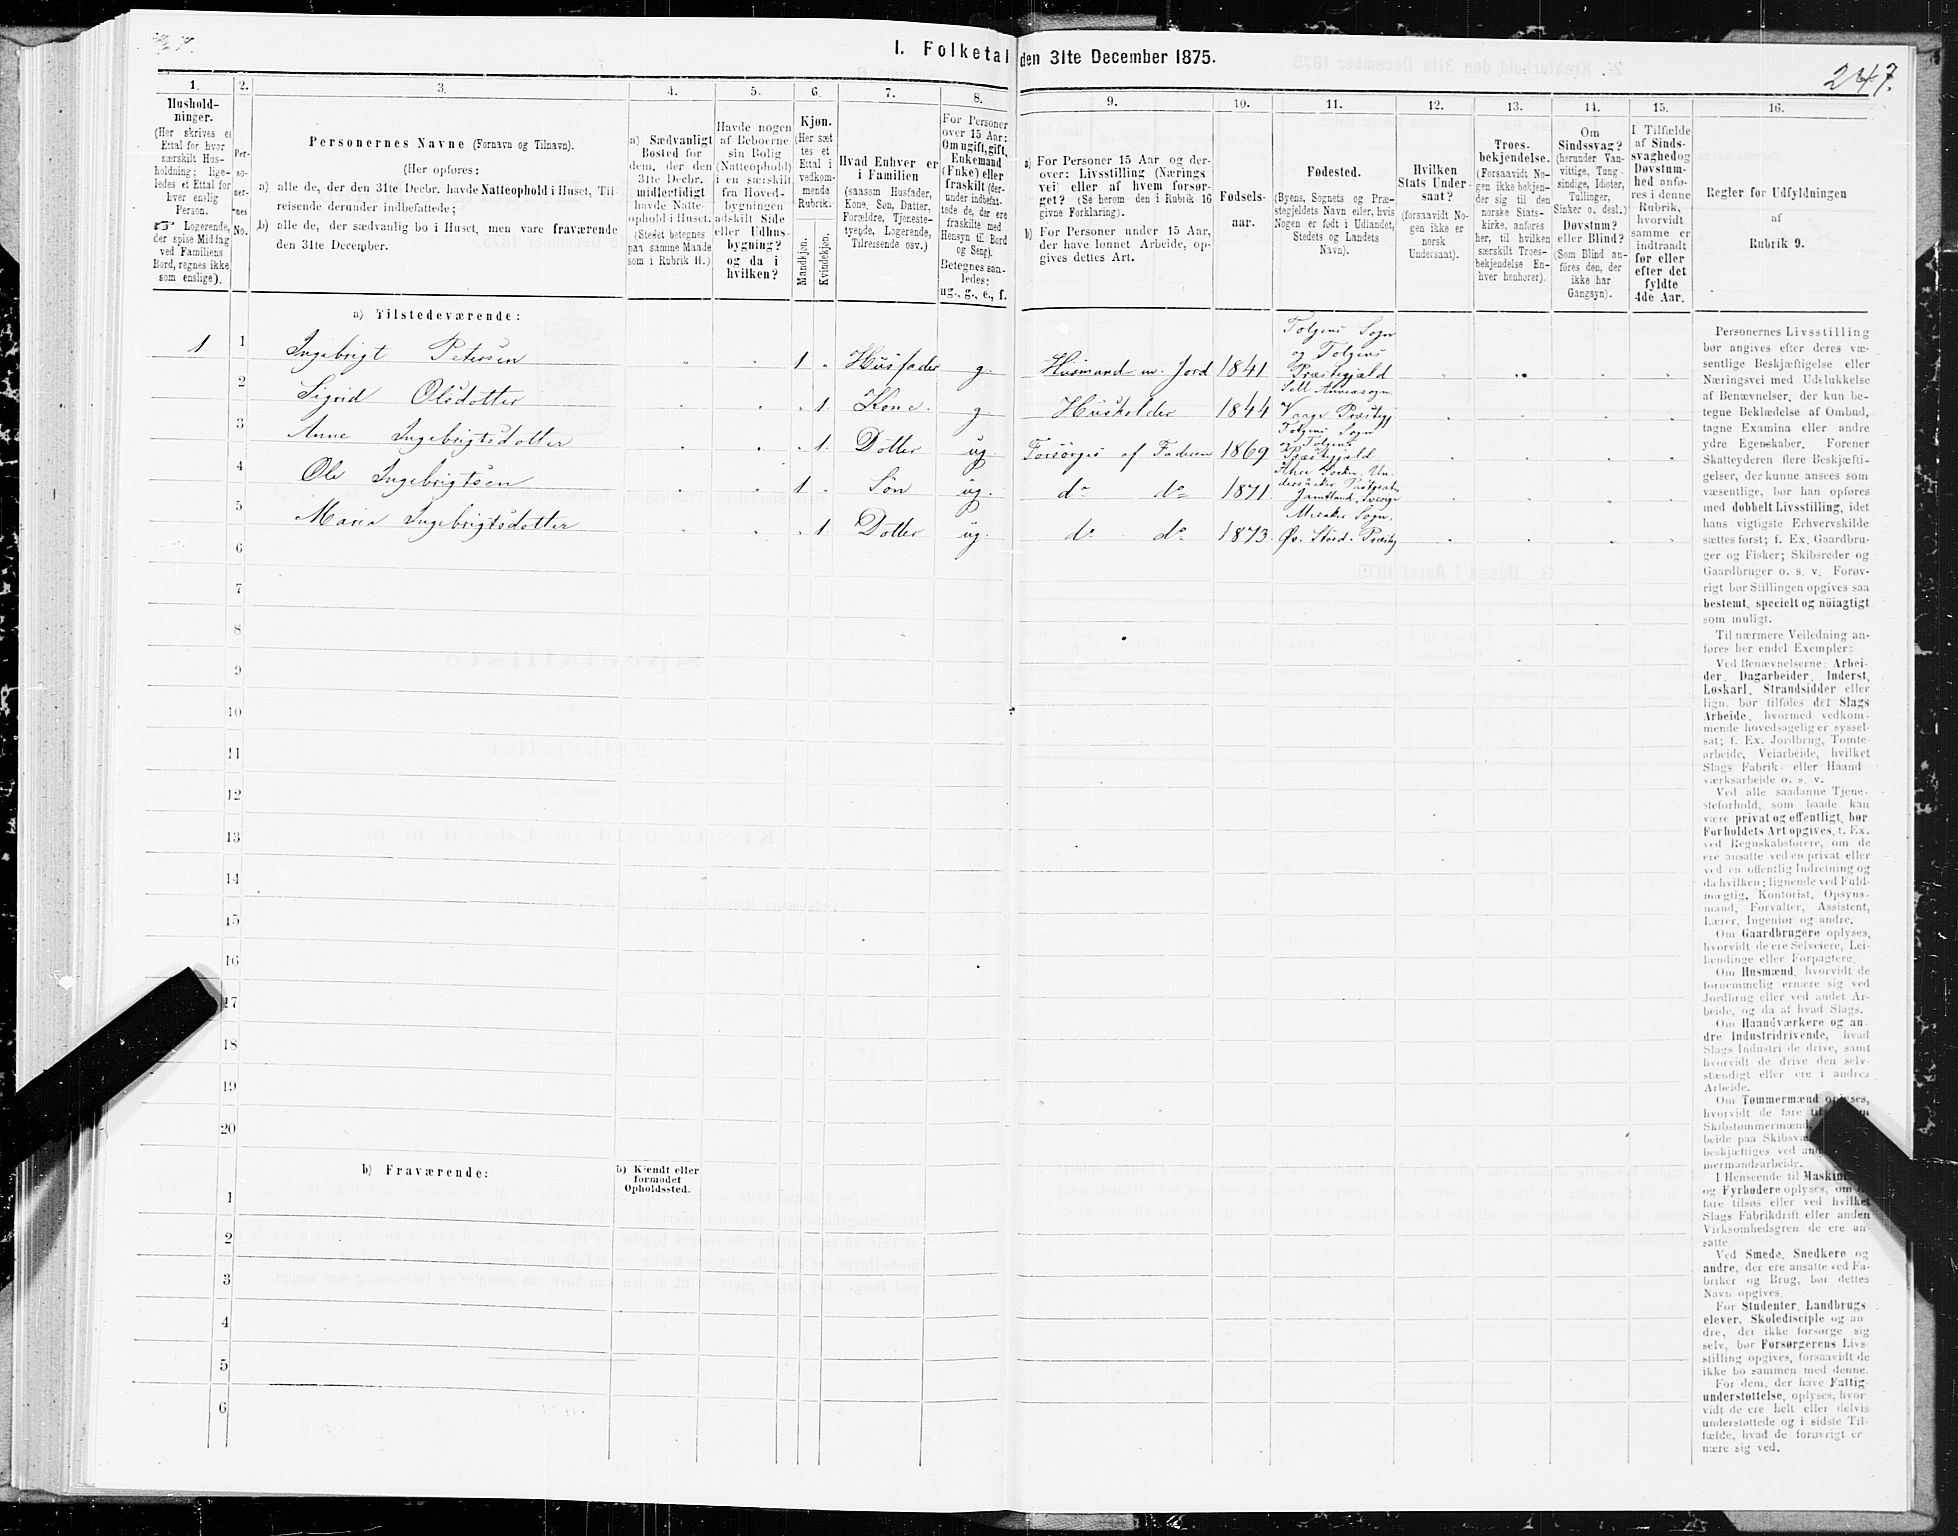 1. Folketal den 31te December 1875.
247.
1.
Hushold-
ninger.
(Her skrives et
Ettal for hver
særskilt Hus-
holdning; lige-
ledes et Ettal for
hver enslig
Person.
☞ Logerende,
der spise Middag
ved Familiens
Bord, regnes ikke
som enslige).
2.
Per-
so-
ner-
nes
No.
3.
Personernes Navne (Fornavn og Tilnavn).
(Her opføres:
a) alle de, der den 31te Decbr. havde Natteophold i Huset, Til-
reisende derunder indbefattede;
b) alle de, der sædvanlig bo i Huset, men vare fraværende
den 31te December.
4.
a) Sædvanligt
Bosted for
dem, der den
31te Decbr.
midlertidigt
havde Natte-
ophold i Huset.
(Stedet betegnes
paa samme Maade
som i Rubrik 11.)
5.
Havde nogen
af Beboerne
sin Bolig
(Natteophold)
i en særskilt
fra Hoved-
bygningen
adskilt Side
eller Udhus-
bygning?
og da i
hvilken?
6.
Kjøn.
(Her sæt
tes et
Ettal i
vedkom-
mende
Rubrik.
Mandkjøn.
Kvindekjøn.
7.
Hvad Enhver er
i Familien
(saasom Husfader,
Kone, Søn, Datter,
Forældre, Tjeneste-
tyende, Logerende,
Tilreisende osv.)
8.
For Personer
over 15 Aar:
Om ugift, gift,
Enkemand
(Enke) eller
fraskilt (der-
under indbefat-
tede de, der ere
fraskilte med
Hensyn til Bord
og Seng).
Betegnes saa-
ledes:
ug., g., e., f.
9.
a) For Personer 15 Aar og der-
over: Livsstilling (Nærings
vei) eller af hvem forsør-
get? (Se herom den i Rubrik 16
givne Forklaring).
b) For Personer under 15 Aar,
der have lønnet Arbeide, op-
gives dettes Art.
10.
Fødsels-
aar.
11.
Fødested.
(Byens, Sognets og Præ-
stegjeldets Navn eller, hvis
Nogen er født i Udlandet,
Stedets og Landets
Navn).
12.
Hvilken
Stats Under-
saat?
(forsaavidt No-
gen ikke er
norsk
Undersaat).
13.
Troes-
bekjendelse.
(Forsaavidt No-
gen ikke bekjen-
der sig til den
norske Stats-
kirke, anføres
her, til hvilken
særskilt Troes-
bekjendelse En-
hver henhører).
14.
Om
Sindssvag?
(herunder Van-
vittige, Tung-
sindige, Idioter,
Tullinger,
Sinker o. desl.)
Døvstum?
eller Blind?
(Som Blind an-
føres den, der
ikke har
Gangsyn).
15.
I Tilfælde
af Sinds-
svaghed og
Døvstum-
hed anfø-
res i denne
Rubrik,
hvorvidt
samme er
indtraadt
før eller
efter det
fyldte
4de Aar.
16.
Regler for Udfyldningen
af
Rubrik 9.
a) Tilstedeværende:
1 1 Ingebrigt Petersen " " 1 " Husfader g. Husmand m. Jord 1841 Tolgens Sogn
og Tolgens
Præstegjæld
2 Sigrid Olsdotter " " " 1. Kone. g Husholder 1844 Sell Annexsogn.
Vaage Præstegj
3 Anne Ingebrigtsdotter " " " 1. Dotter ug. Forsørges af Faderen 1869 Tolgens Sogn
og Tolgens
Præstegjæld
4 Ole Ingebrigtsen " " 1 " Søn ug. do do 1871
Jämtland, Sverige
5 Maria Ingebrigtsdotter " " " 1. Dotter ug. do do 1873. Meraker Sogn.
Øv. Størd. Præstegj
6
7
8
9
10
11
12
13
14
15
16
17
18
19
20
b) Fraværende:
b) Kjendt eller
formodet
Opholdssted.
1
2
3
4
5
6
Personernes Livsstilling
bør angives efter deres væ-
sentlige Beskjæftigelse eller
Næringsvei med Udelukkelse
af Benævnelser, der kun be-
tegne Beklædelse af Ombud,
tagne Examina eller andre
ydre Egenskaber. Forener
Skatteyderen flere Beskjæfti-
gelser, der kunne ansees som
væsentlige, bør han opføres
med dobbelt Livsstilling, idet
hans vigtigste Erhvervskilde
sættes først; f. Ex. Gaardbru-
ger og Fisker; Skibsreder og
Gaardbruger o. s. v. Forøv-
rigt bør Stillingen opgives saa
bestemt, specielt og nöiagtigt
som muligt.
Til nærmere Veiledning an-
føres her endel Exempler:
Ved Benævnelserne: Arbei-
der, Dagarbeider, Inderst,
Løskarl, Strandsidder eller
lign. bør tilføies det Slags
Arbeide, hvormed vedkom-
mende hovedsagelig er syssel-
sat; f. Ex. Jordbrug, Tomte-
arbeide, Veiarbeide, hvilket
Slags Fabrik- eller Haand
værksarbeide o. s. v.
Ved alle saadanne Tjene-
steforhold, som baade kan
være privat og offentligt, bør
Forholdets Art opgives, f. Ex.
ved Regnskabsførere, om de
ere ansatte ved en privat eller
ved en offentlig Indretning og
da hvilken; lignende ved Fuld-
mægtig, Kontorist, Opsyns-
mand, Forvalter, Assistent,
Lærer, Ingeniør og andre.
Om Gaardbrugere oplyses,
hvorvidt de ere Selveiere, Lei-
lændinge eller Forpagtere.
Om Husmænd, hvorvidt de
fornemmelig ernære sig ved
Jordbrug eller ved andet Ar-
beide, og da af hvad Slags.
Om Haandværkere og an-
dre Industridrivende, hvad
Slags Industri de drive, samt
hvorvidt de drive den selv-
stændigt eller ere i andres
Arbeide.
Om Tømmermænd oplyses,
hvorvidt de fare
Skibstømmermænd,
beide paa
beskjæftiges ved
mermandsarbeide.
I Henseende til
og Fyrbødere oplyses,
fare tilsøs eller ved hvilket
Slags Fabrikdrift eller anden
Virksomhedsgren de ere an-
satte
Ved Smede, Snedkere og
andre, der ere ansatte ved Fa-
briker og Brug, bør dettes
Navn opgives.
For Studenter, Landbrugs
elever, Skoledisciple og an-
dre, der ikke forsørge sig
selv, bør Forsørgerens Livs-
stilling opgives, forsaavidt de
ikke bo sammen med denne.
For dem, der have Fattig
understøttelse, oplyses, hvor
vidt de ere helt eller delvis
understøttede og i sidste Til-
fælde, hvad de forøvrigt er
nære sig ved.